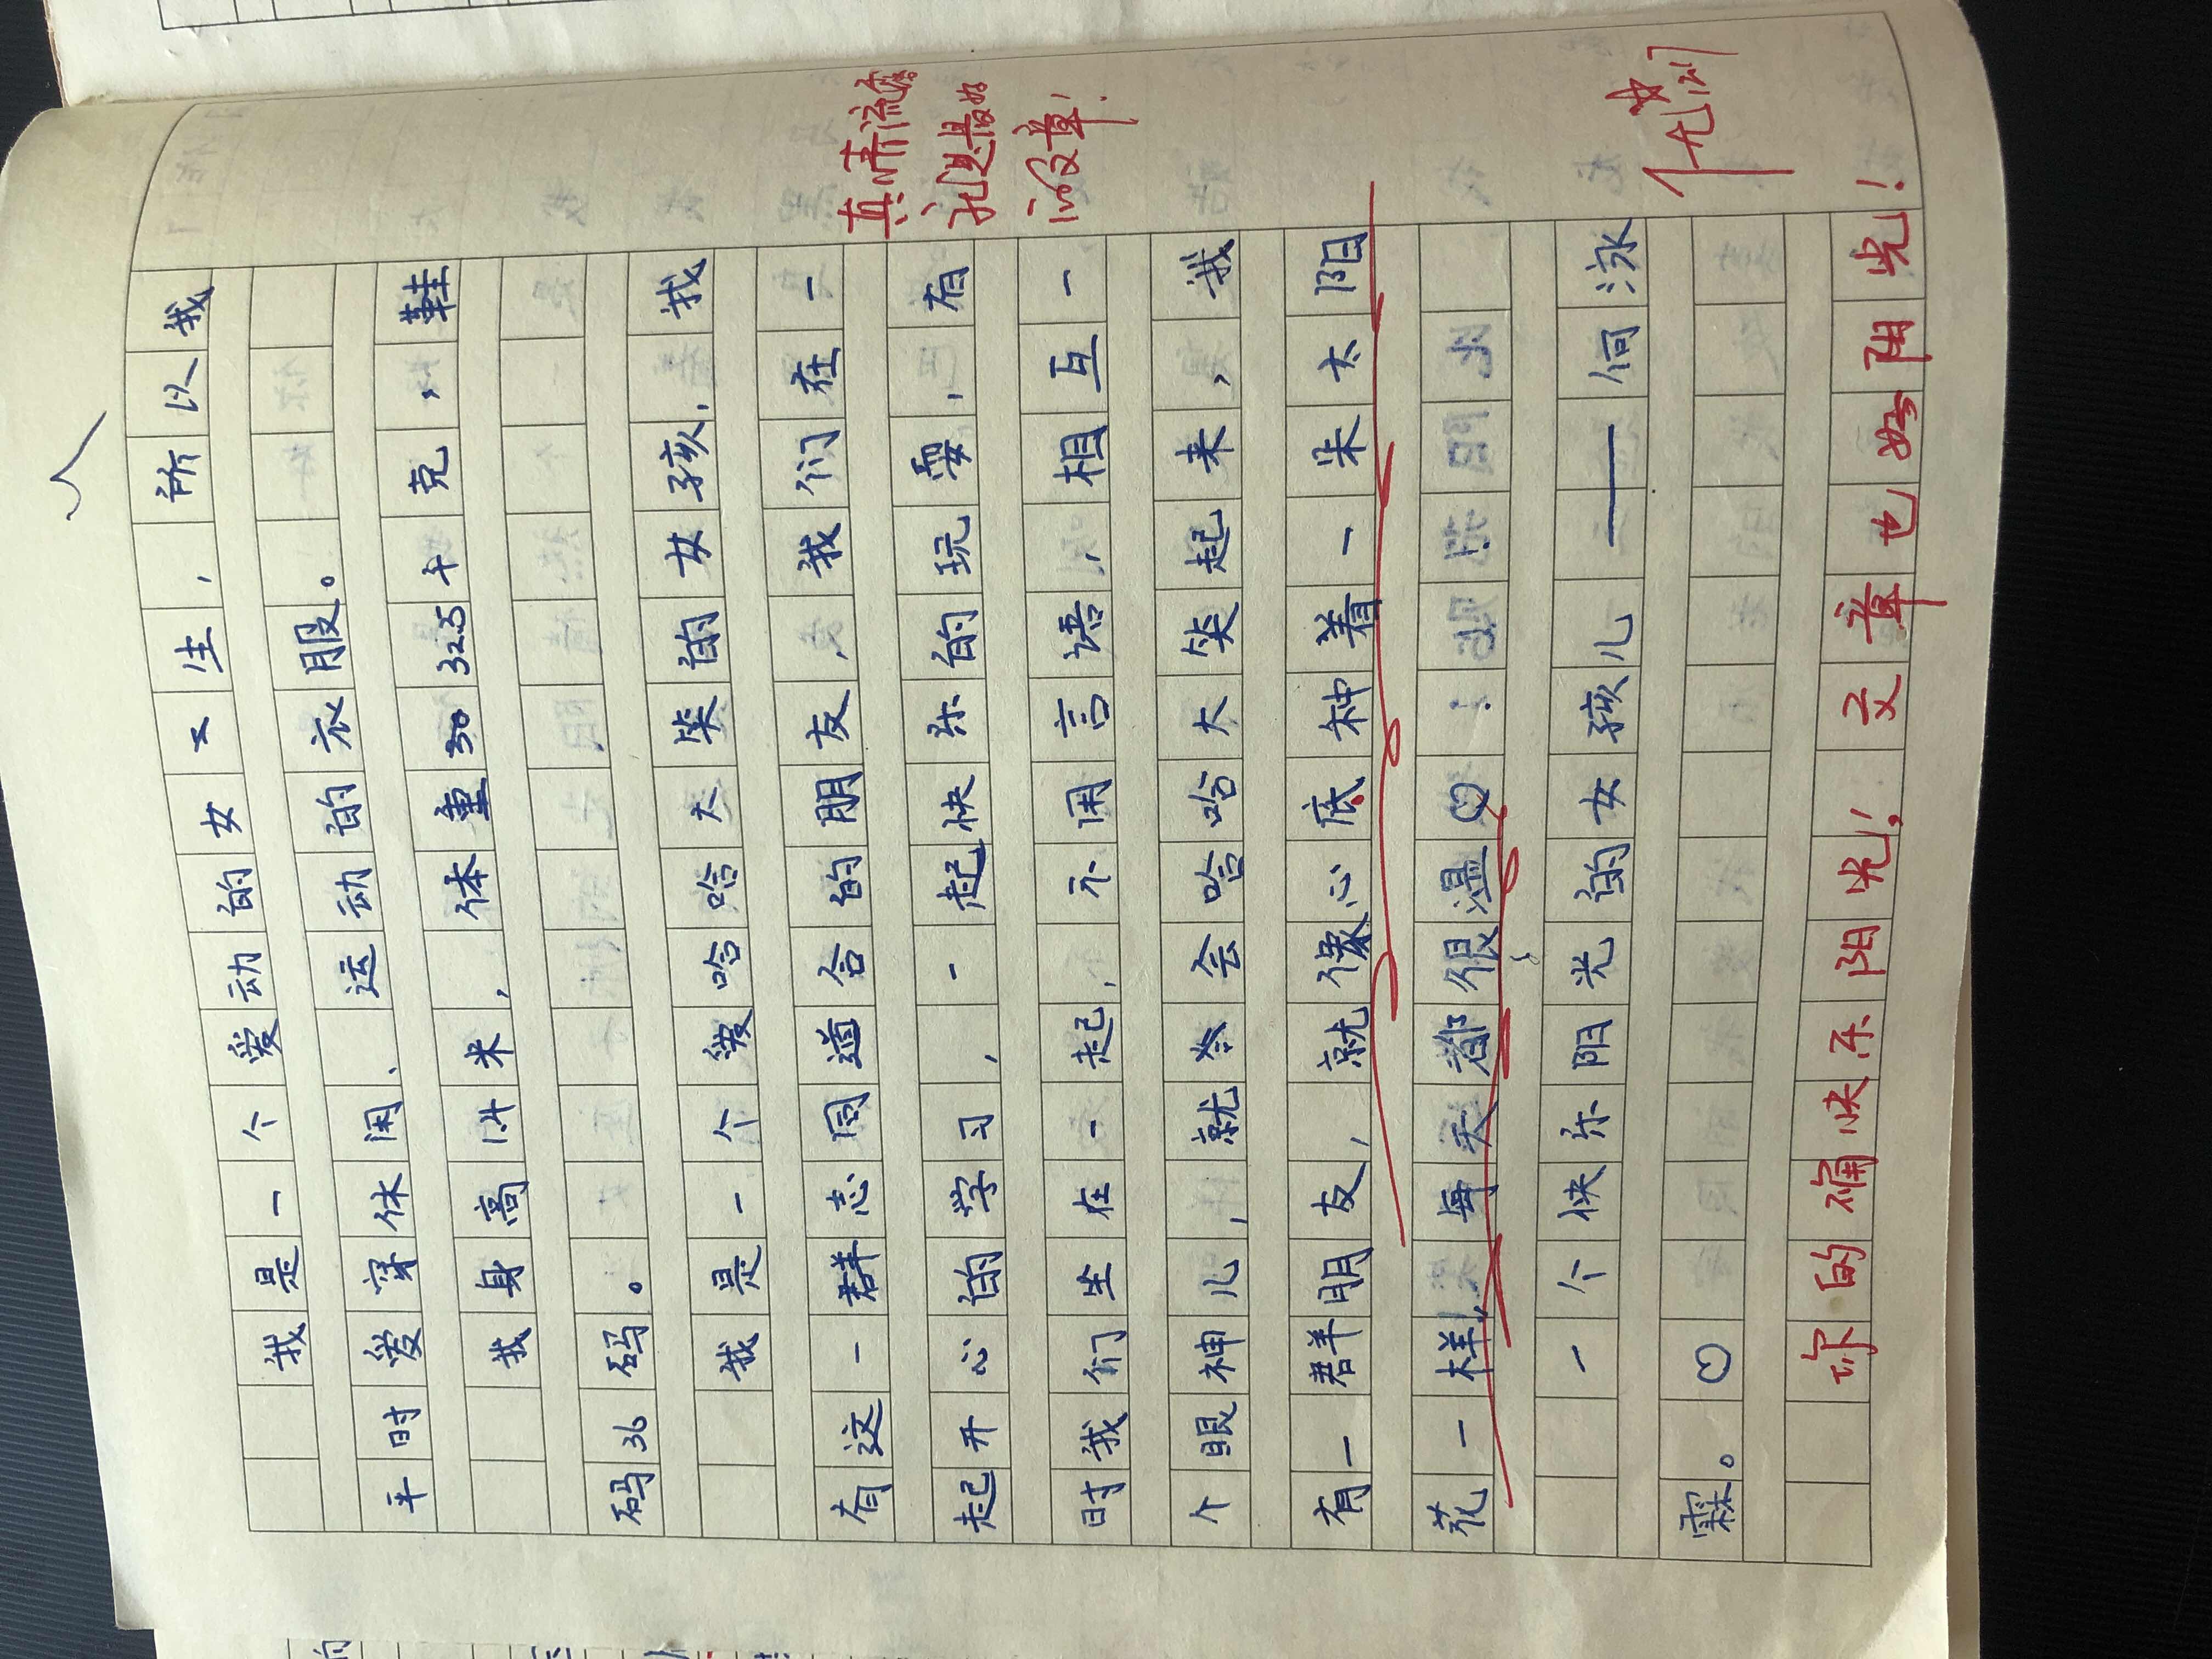 我是一个爱动的女文生，所以我
平时爱穿休闲、运动的衣服。
我身高1.4米，体重32.5千克，鞋
码36码。
我是一个爱哈哈大笑的女孩，我
有这一群志同道合的朋友，我们在一
起开心的学习，一起快乐的玩耍，有
时我们坐在一起，不困言语，相互一
个眼神儿，就会哈哈大笑起来，我
有一群朋友，就像心底种着一朵太阳
花一样，每天都很温♡
一个快乐阳光的女孩儿——何泳
霖。♡
真情流露
就是最好
的文章！
优
你的确快乐阳光！文章也如阳光！